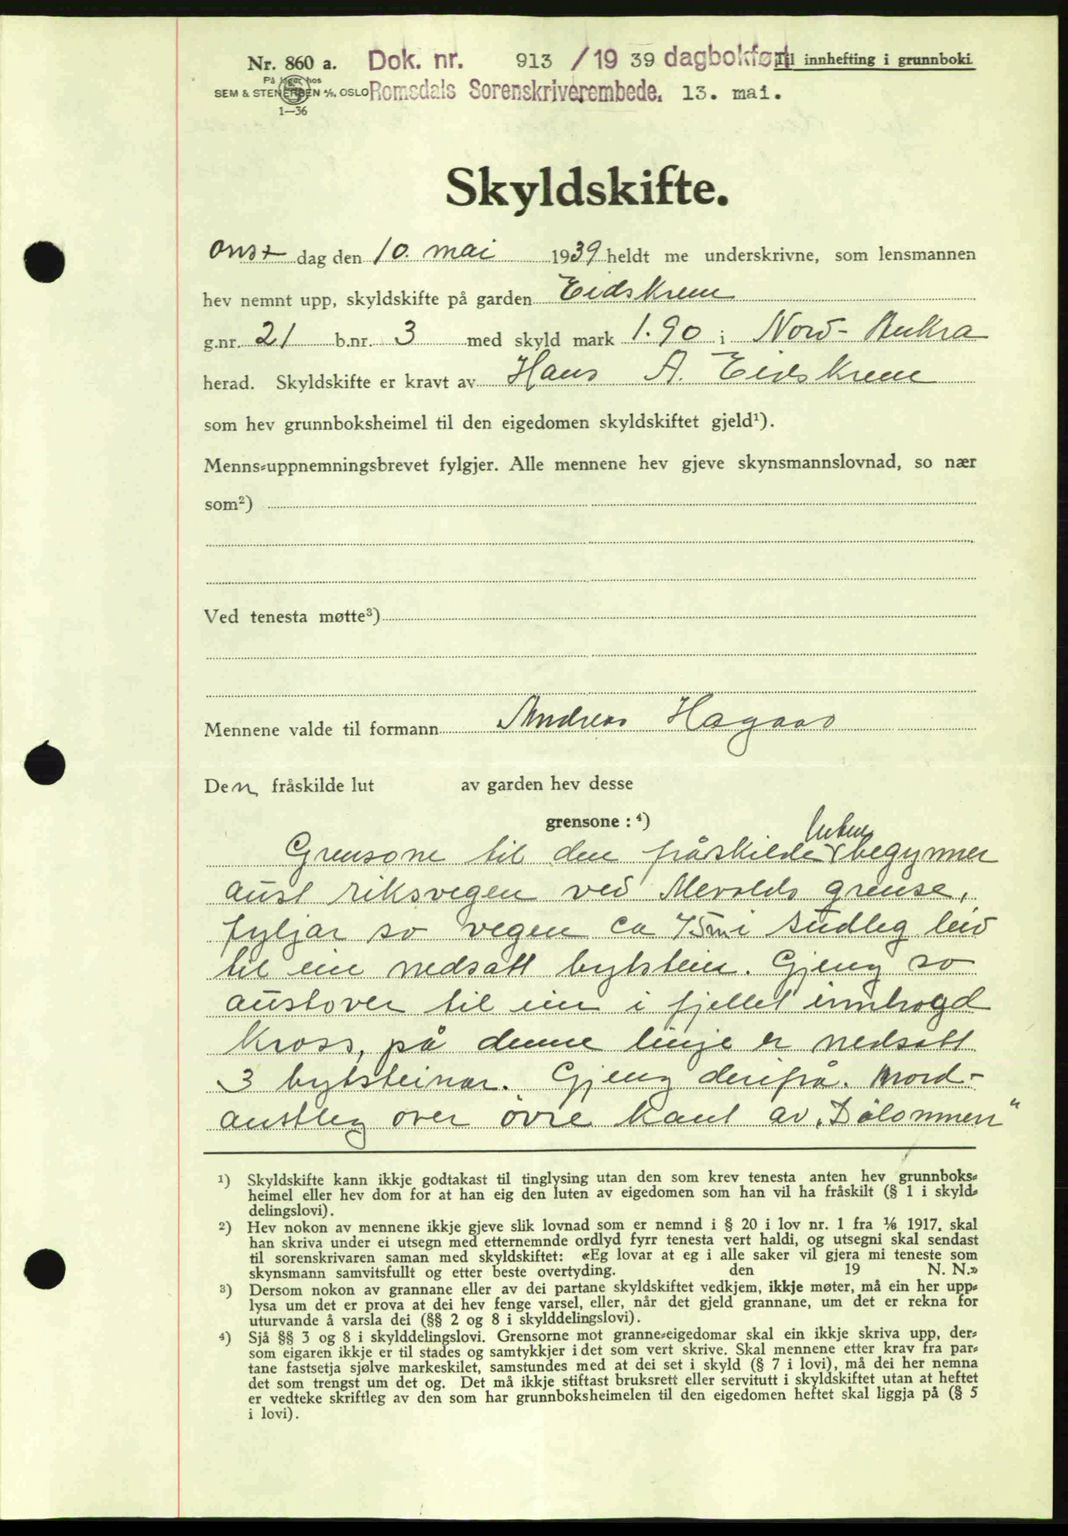 Nr. 860 a. Dok. nr. 913 / 19 39 dagbokført Til innhefting i grunnboki
På lager hos
SEM & STENERSEN A/S, OSLO Romsdals Sorenskriverembede. 13. mai.
1—36
Skyldskifte.
onsdag den 10. mai 1939 heldt me underskrivne, som lensmannen
hev nemnt upp, skyldskifte på garden Eidskrem
g.nr. 21 b.nr. 3 med skyld mark 1.90 i Nord-Aukra
herad. Skyldskifte er kravt av Hans A. Eidskrem
som hev grunnboksheimel til den eigedomen skyldskiftet gjeld¹).
Menns-uppnemningsbrevet fylgjer. Alle mennene hev gjeve skynsmannslovnad, so nær
som²)
Ved tenesta møtte³)
Mennene valde til formann Andreas Hagaas
Den fråskilde lut av garden hev desse
grensone : ⁴)
luten
Grensone til den fråskilde begynner
aust riksvegen ved Mevolds grense,
fyljar so vegen ca 75 m i sudleg leid
til ein nedsatt bytstein. Gjeng so
austover til ein i fjellet innhogd
kross, på denne linje er nedsatt
3 bytsteinar. Gjeng derifrå. Nord-
austleg over övre kant av „Dålommen“
¹) Skyldskifte kann ikkje godtakast til tinglysing utan den som krev tenesta anten hev grunnboks-
heimel eller hev dom for at han eig den luten av eigedomen som han vil ha fråskilt (§ 1 i skyld-
delingslovi).
²) Hev nokon av mennene ikkje gjeve slik lovnad som er nemnd i § 20 i lov nr. 1 fra ¹/₆ 1917, skal
han skriva under ei utsegn med etternemnde ordlyd fyrr tenesta vert haldi, og utsegni skal sendast
til sorenskrivaren saman med skyldskiftet: «Eg lovar at eg i alle saker vil gjera mi teneste som
skynsmann samvitsfullt og etter beste overtyding. den 19 N. N.»
³) Dersom nokon av grannane eller av dei partane skyldskiftet vedkjem, ikkje møter, må ein her upp-
lysa um det er prova at dei hev fenge varsel, eller, når det gjeld grannane, um det er rekna for
uturvande å varsla dei (§§ 2 og 8 i skylddelingslovi).
⁴) Sjå §§ 3 og 8 i skylddelingslovi. Grensorne mot granne-eigedomar skal ein ikkje skriva upp, der-
som eigaren ikkje er til stades og samtykkjer i det som vert skrive. Skal mennene etter krav fra par-
tane fastsetja sjølve markeskilet, samstundes med at dei set i skyld (§ 7 i lovi), må dei her nemna
det som trengst um det og. Det må ikkje stiftast bruksrett eller servitutt i skyldskiftet utan at heftet
er vedteke skriftleg av den som har grunnboksheimelen til den eigedomen heftet skal liggja på (§ 5
i lovi).